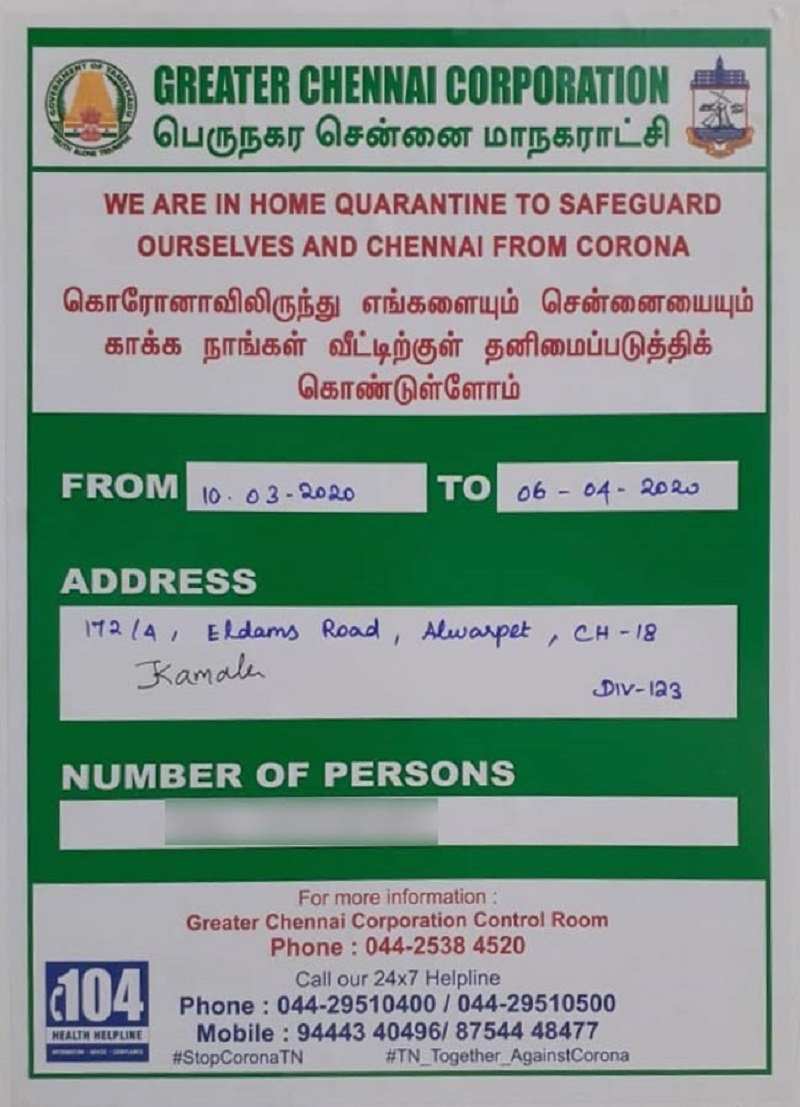 GREATER CHENNAI CORPORATION
பெருநகர சென்னை மாநகராட்சி
GOVERNMENT OF TAMILNADU
TRUTH ALONE TRIUMPHS
WE ARE IN HOME QUARANTINE TO SAFEGUARD
OURSELVES AND CHENNAI FROM CORONA
கொரோனாவிலிருந்து எங்களையும் சென்னையையும்
காக்க நாங்கள் வீட்டிற்குள் தனிமைப்படுத்திக்
கொண்டுள்ளோம்
FROM 10.03-2020 TO 06-04-2020
ADDRESS
172/A, Eldams Road, Alwarpet, CH-18
DIV-123
NUMBER OF PERSONS
For more information :
Greater Chennai Corporation Control Room
Phone : 044-2538 4520
Call our 24x7 Helpline
Phone : 044-29510400 / 044-29510500
Mobile : 94443 40496/ 87544 48477
#StopCoronaTN #TN_Together_AgainstCorona
104
HEALTH HELPLINE